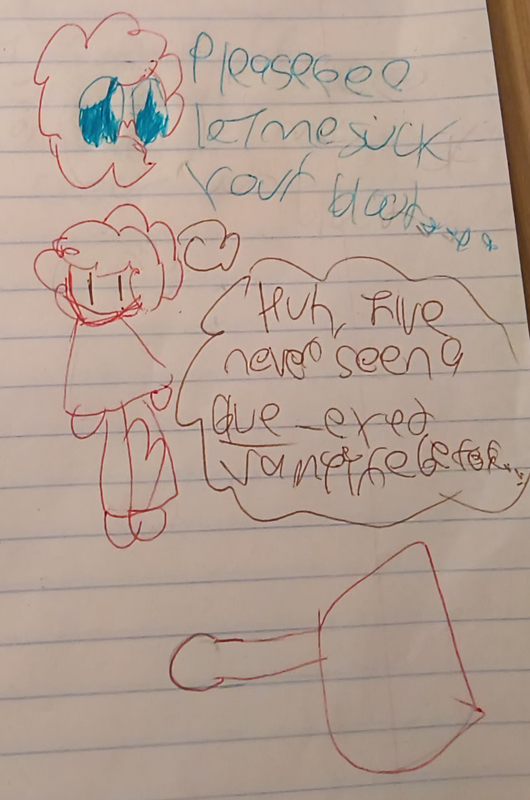 Pleaseeee
let me suck
your blood....
Huh, I've
never seen a
blue-eyed
vampire before...